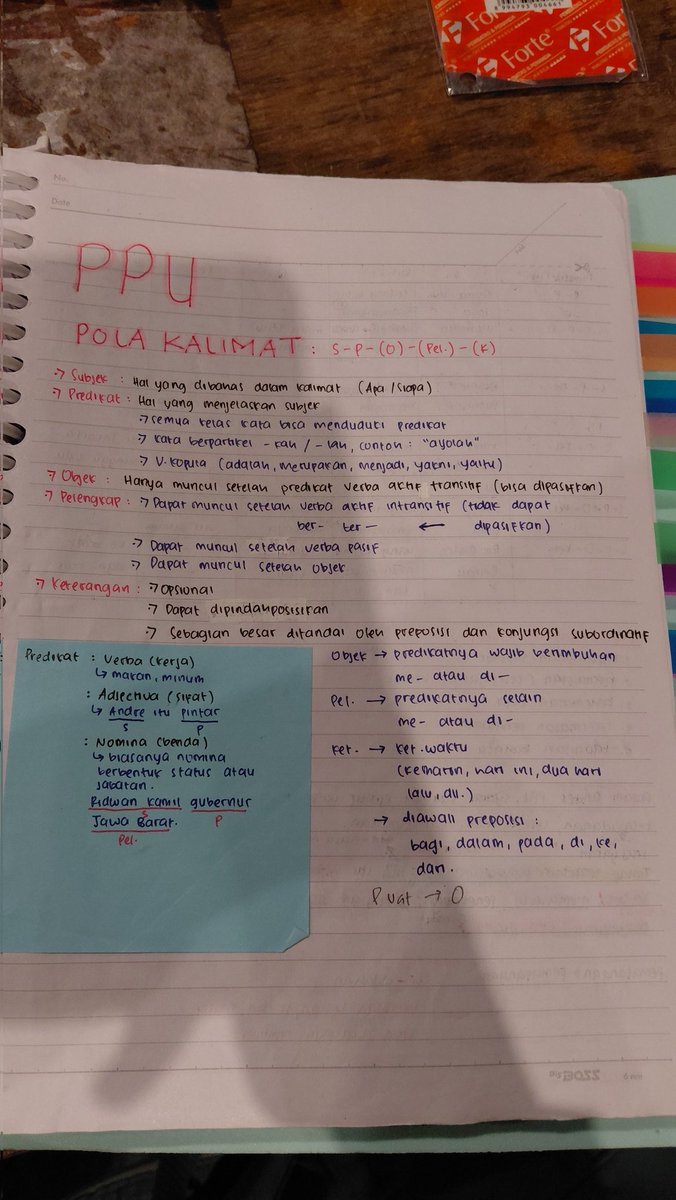 8 994793 004661
Forte
No.
Date
PPU
POLA KALIMAT : S-P-(O)-(Pel.)-(K)
→ Subjek : Hal yang dibahas dalam kalimat (Apa/Siapa)
→ Predikat : Hal yang menjelaskan subjek
→ semua kelas kata bisa menduduki predikat
→ kata berpartikel -kah / -lah, contoh : "ayolah"
→ V. Kopula (adalah, merupakan, menjadi, yakni, yaitu)
→ Objek : Hanya muncul setelah predikat verba aktif transitif (bisa dipasifkan)
→ Pelengkap : → Dapat muncul setelah verba aktif intransitif (tidak dapat
ber- ter- ← dipasifkan)
→ Dapat muncul setelah verba pasif
→ Dapat muncul setelah objek
→ Keterangan : → Opsional
→ Dapat dipindahposisikan
→ Sebagian besar ditandai oleh preposisi dan konjungsi subordinatif
Predikat : Verba (kerja)
↳ makan, minum
: Adjectiva (sifat)
↳ Andre itu pintar
S P
: Nomina (benda)
↳ biasanya nomina
berbentuk status atau
jabatan.
Ridwan kamil gubernur
S P
Jawa Barat.
Pel.
Objek → predikatnya wajib berimbuhan
me- atau di-
Pel. → predikatnya selain
me- atau di-
Ket. → Ket. waktu
(kemarin, hari ini, dua hari
lalu, dll.)
→ diawali preposisi :
bagi, dalam, pada, di, ke,
dan.
→ O
BOSS